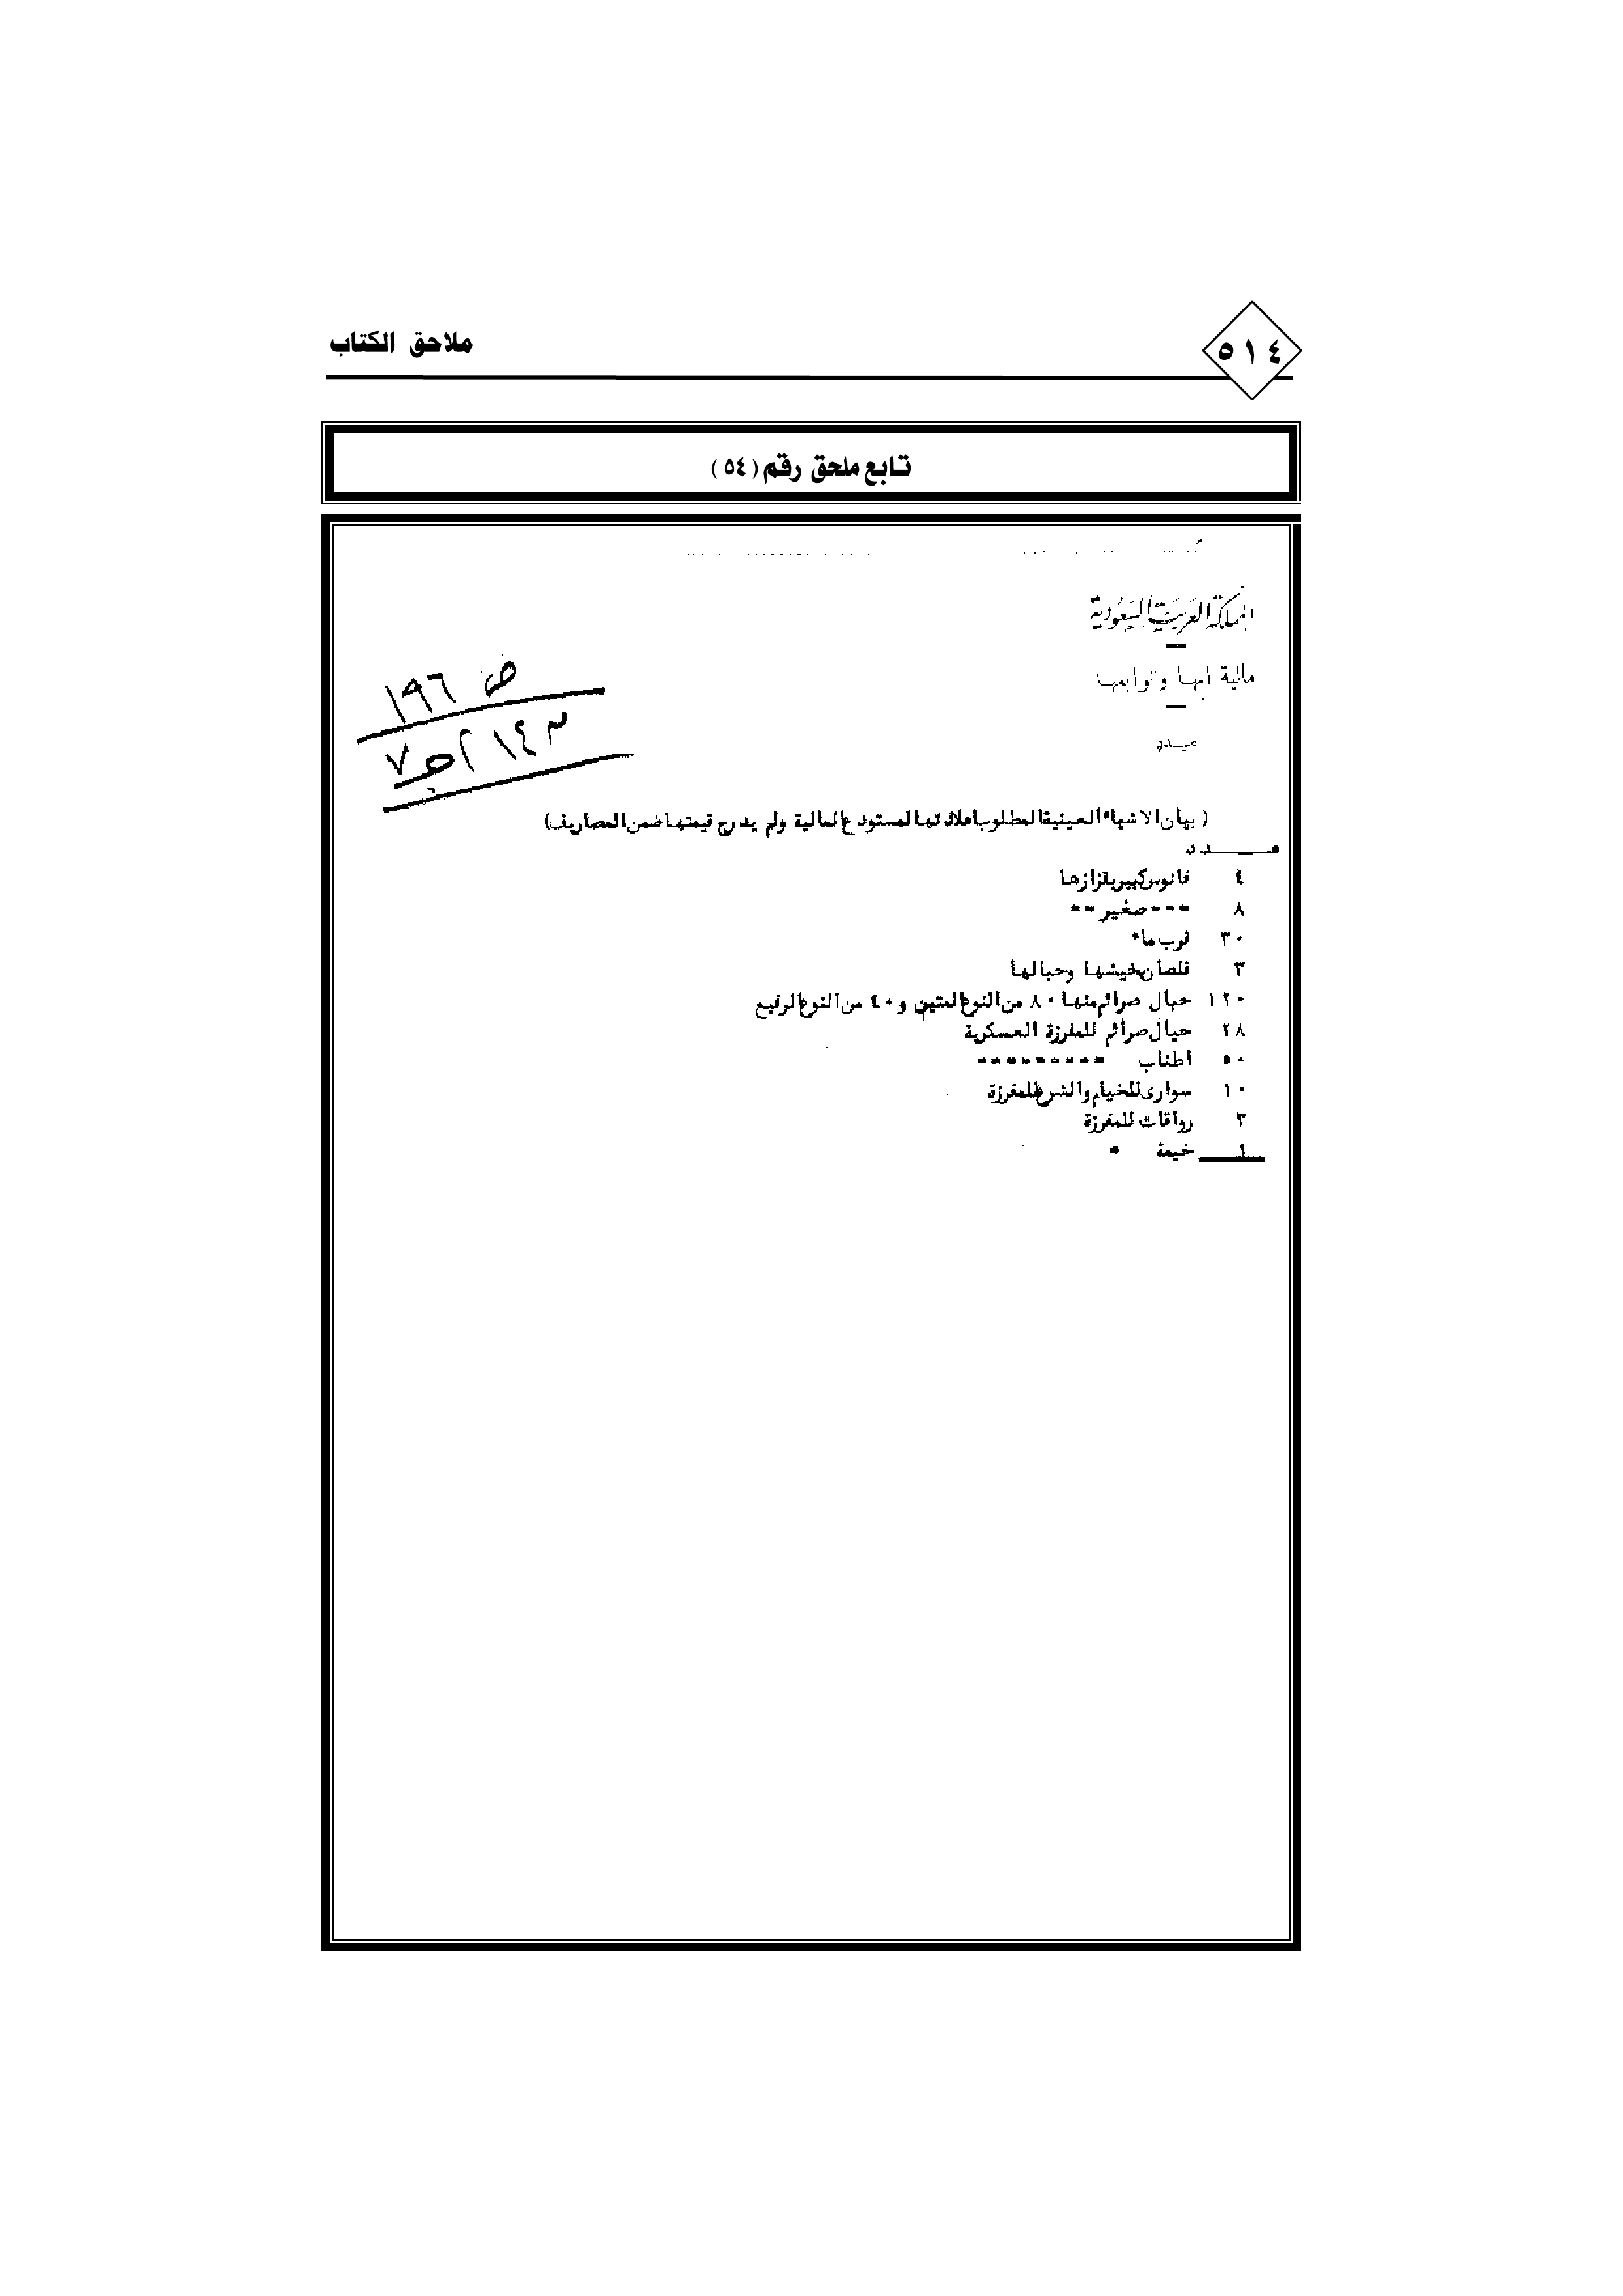 ٥١٤
ملاحق الكتاب
تابع ملحق رقم (٥٤)
المملكة العربية السعودية
مالية ابها وتوابعها
ص ١٩٦
( بيان الاشياء العينية المطلوب لمستودع المالية ولم يدرج قيمتها ضمن المصاريف)
عدد
٤ فانوس كبير بقزازها
٨ " " " صغير " "
٣٠ قرب ماء
٣ قلصان بخيشها وحبالها
١٢٠ حبال صرائم منها ٨٠ من النوع المتين و٤٠ من النوع الرفيع
٢٨ حبال صرائم للمفرزة العسكرية
٥٠ اطناب " " " " " " " " "
١٠ سوارى للخيام والشرع للمفرزة
٣ رواقات للمفرزة
١ خيمة "